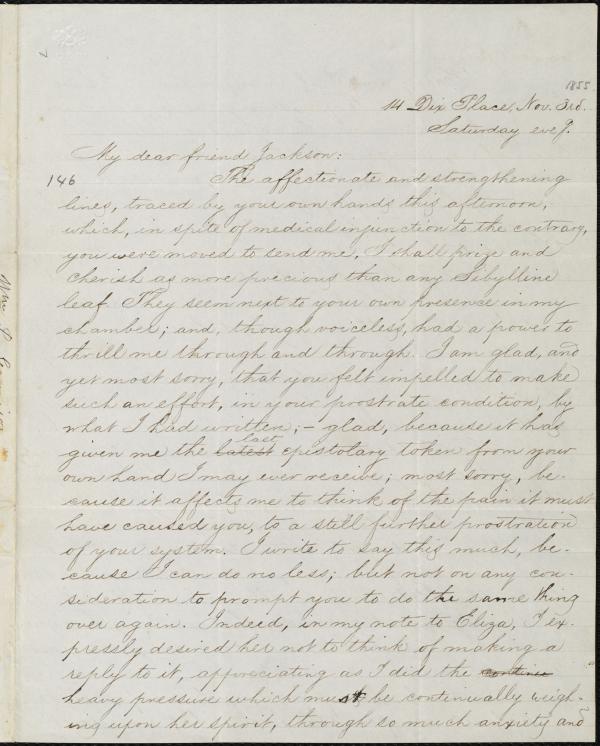 1855
14 Dix Place, Nov. 3rd.
Saturday eve'g.
My dear friend Jackson:
146
The affectionate and strengthening
lines, traced by your own hands this afternoon,
which, in spite of medical injunction to the contrary,
you were moved to send me, I shall prize and
cherish as more precious than any Sibylline
leaf. They seem next to your own presence in my
chamber; and, though voiceless, had a power to
thrill me through and through. I am glad, and
yet most sorry, that you felt impelled to make
such an effort, in your prostrate condition, by
what I had written;—glad, because it has
given me the latest last epistolary token from your
own hand I may ever receive; most sorry, be-
cause it affects me to think of the pain it must
have caused you, to a still further prostration
of your system. I write to say this much, be-
cause I can do no less; but not on any con-
sideration to prompt you to do the same thing
over again. Indeed, in my note to Eliza, I ex-
pressly desired her not to think of making a
reply to it, appreciating as I did the continu
heavy pressure which must be continually weigh-
ing upon her spirit, through so much anxiety and
Wm. L. Garrison